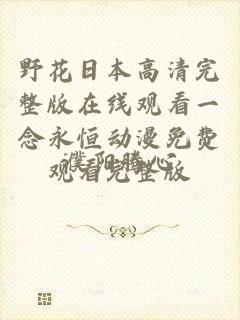 野花日本高清完
整版在线观看一
念永恒动漫免费
观看完整版
濮阳腾心